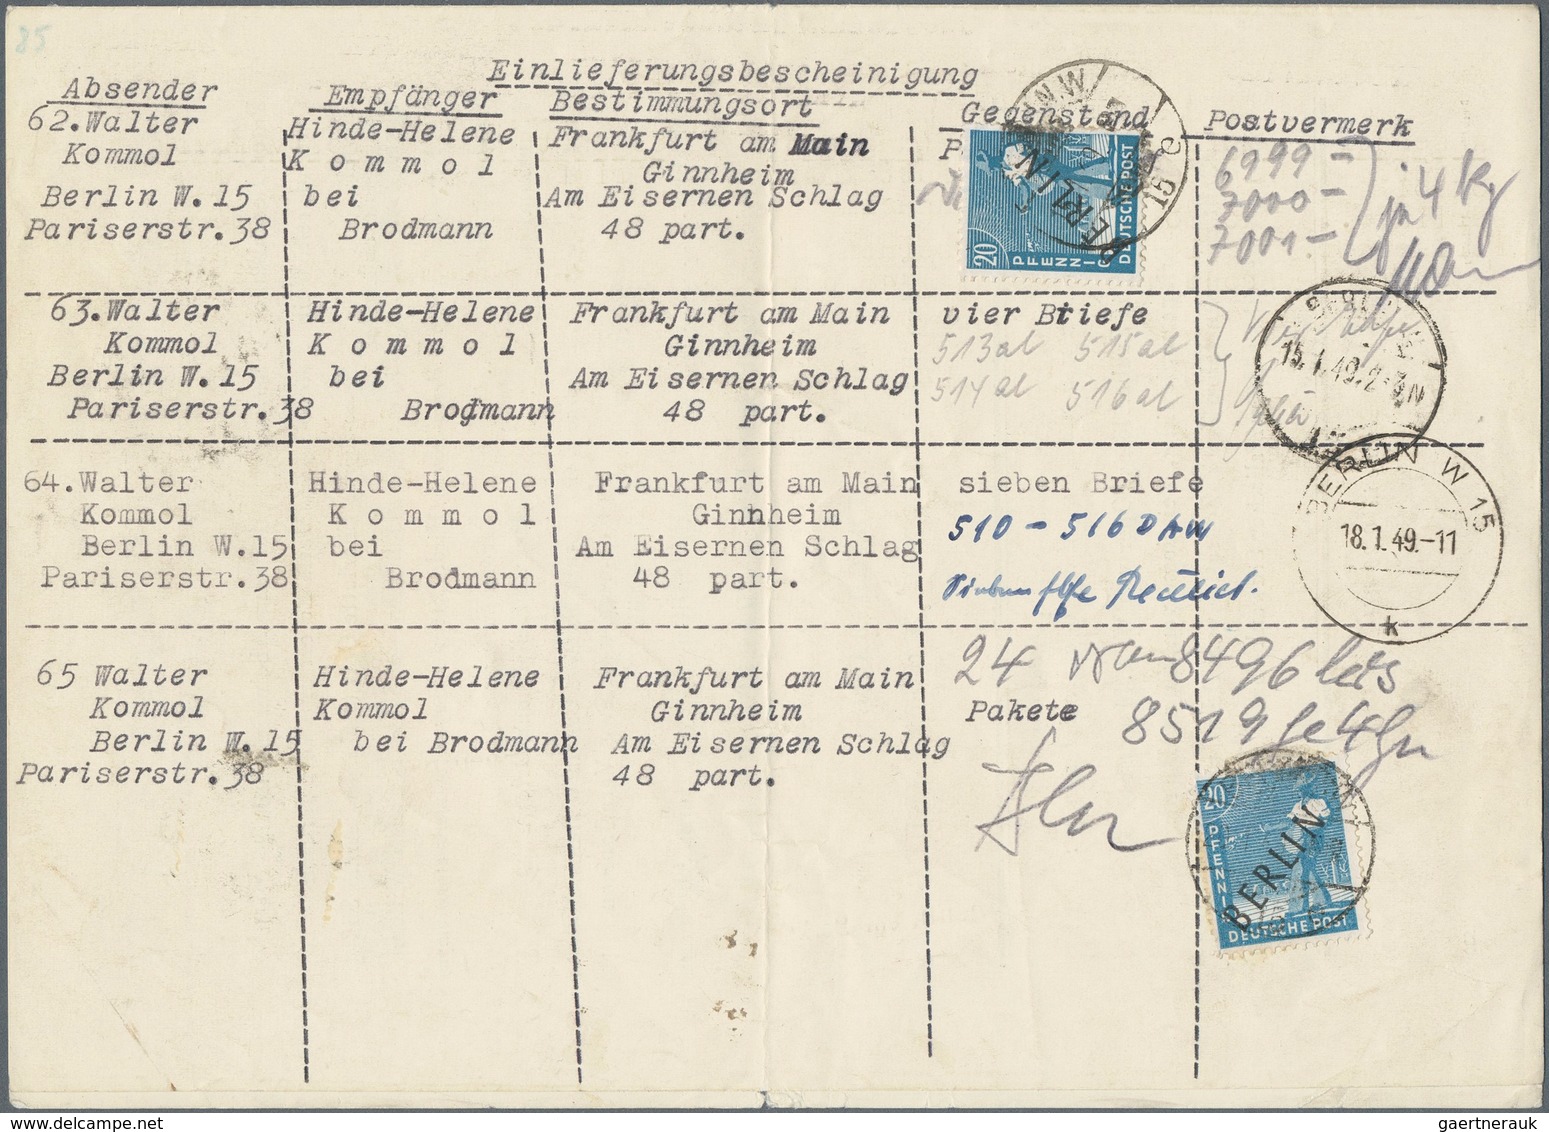 85
Einlieferungsbescheinigung
Absender Empfänger Bestimmungsort Gegenstand Postvermerk
62.Walter
Kommol
Berlin W.15
Pariserstr.38
Hinde-Helene
K o m m o l
bei
Brodmann
Frankfurt am Main
Ginnheim
Am Eisernen Schlag
48 part.
P
6999-
7000-
7001-
je 4 kg
20
PFENNIG
DEUTSCHE POST
BERLIN
15 e
63.Walter
Kommol
Berlin W.15
Pariserstr.38
Hinde-Helene
K o m m o l
bei
Brodmann
Frankfurt am Main
Ginnheim
Am Eisernen Schlag
48 part.
vier Briefe
513al 515al
514al 516al
15.1.49.
64.Walter
Kommol
Berlin W.15
Pariserstr.38
Hinde-Helene
K o m m o l
bei
Brodmann
Frankfurt am Main
Ginnheim
Am Eisernen Schlag
48 part.
sieben Briefe
510 - 516
BERLIN W 15
18.1.49.-11
k
65 Walter
Kommol
Berlin W.15
Pariserstr.38
Hinde-Helene
Kommol
bei Brodmann
Frankfurt am Main
Ginnheim
Am Eisernen Schlag
48 part.
24 8496 bis
Pakete 8519
20
PFENNIG
BERLIN
DEUTSCHE POST
gaertnerauk